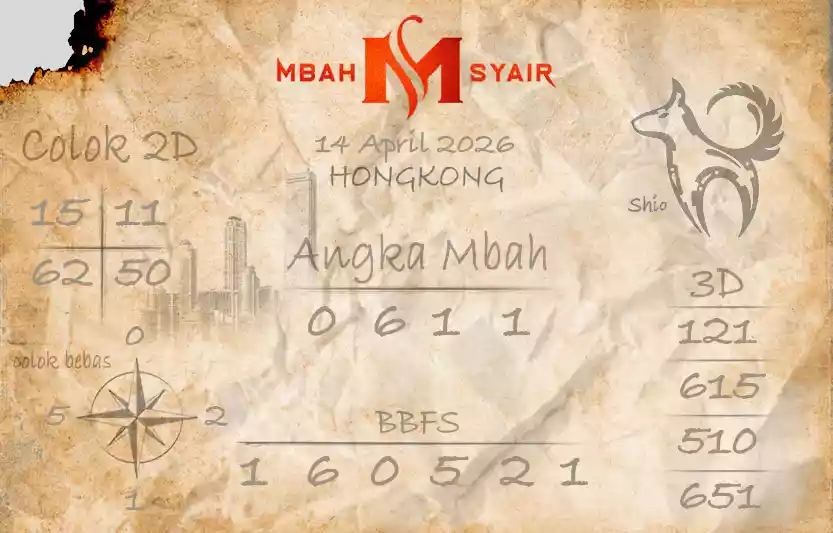 MBAH M SYAIR
14 April 2026
HONGKONG
Colok 2D
15 11
62 50
Shio
Angka Mbah
0 6 1 1
3D
121
615
510
651
colok bebas
0
5 2
1
BBFS
1 6 0 5 2 1